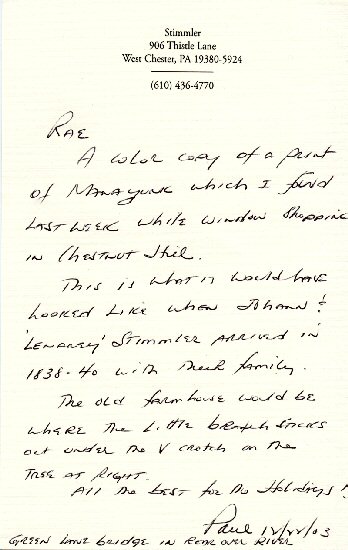 Stimmler
906 Thistle Lane
West Chester, PA 19380-5924
(610) 436-4770
Rae
A color copy of a print
of Manayunk which I found
last week while window shopping
in Chestnut Hill.
This is what it would have
looked like when Johann &
Stimmler arrived in
1838-40 with their family.
The old farmhouse would be
where the little branch sticks
out under the V crotch on the
tree at right.
All the best for the Holidays!
Paul 12/22/03
Green Lane bridge in rear over river